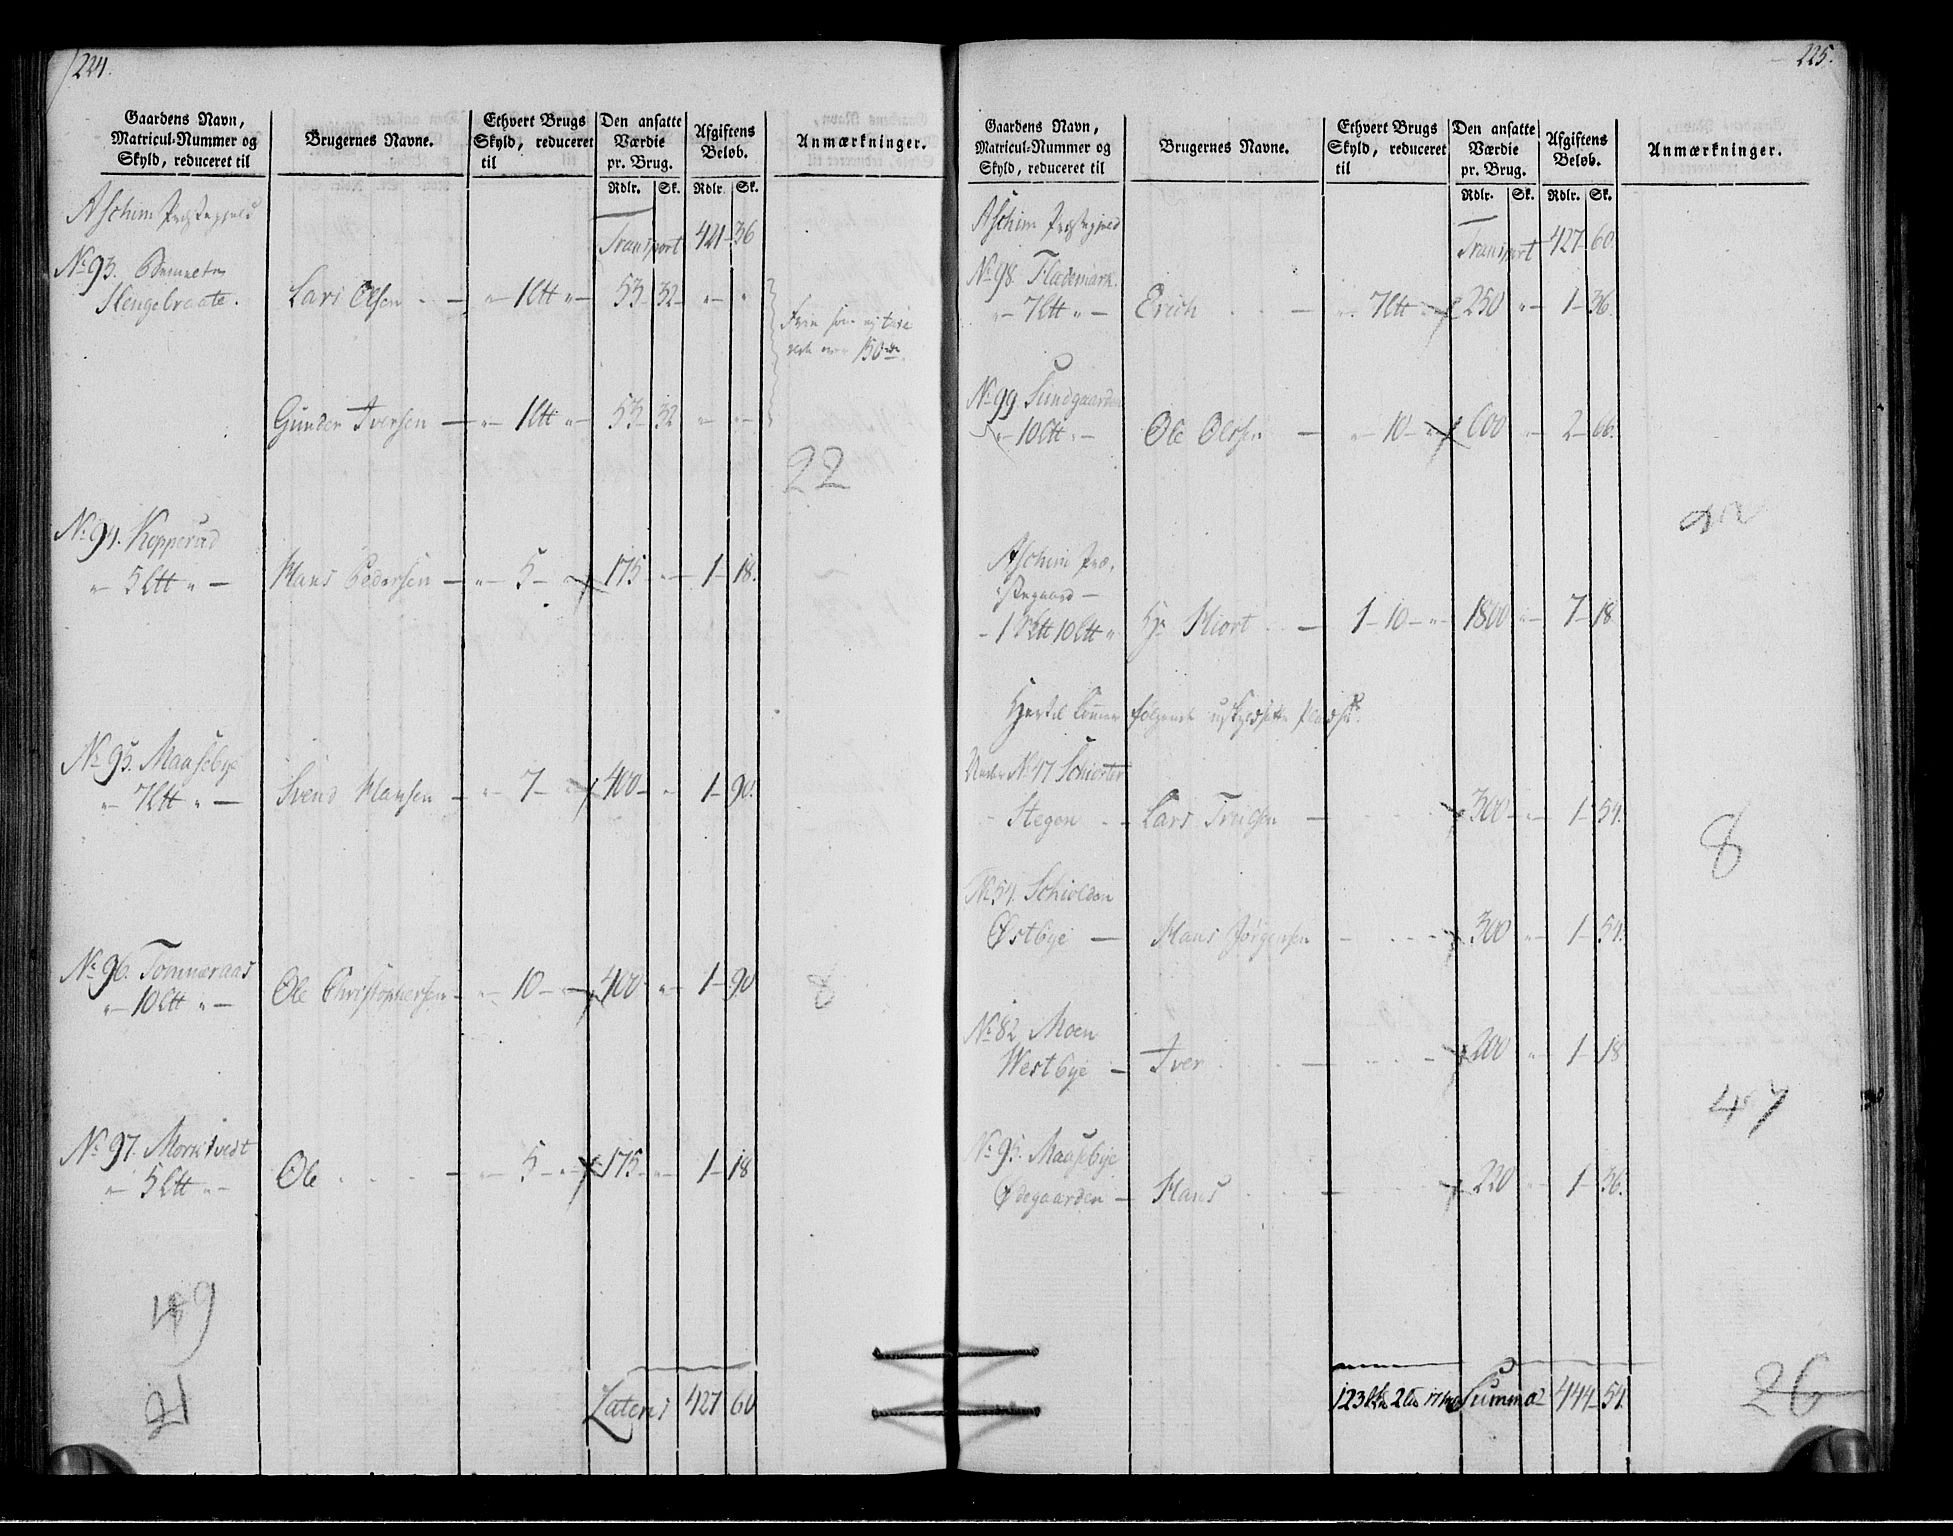 224.
Gaardens Navn, Matricul-Nummer og Skyld, reduceret til | Brugernes Navne. | Ethvert Brugs Skyld, reduceret til | Den ansatte Værdie pr. Brug. | Afgiftens Beløb. | Anmærkninger.
Rdlr. | Sk. | Rdlr. | Sk.
Aschim Præstegield
Transport 421 - 36
No 93.
Slengebraate. Lars Olsen - " - 1 Ltt " - 53 - 32 - " - "
150
Gunder Iversen - " - 1 Ltt " - 53 - 32 - " - "
22
No 94. Kopperud
" - 5 Ltt " - Hans Pedersen - " - 5 - " 175 - " - 1 - 18.
No 95. Maasebye
" - 7 Ltt " - Svend Hansen - " - 7 - " 400 - " - 1 - 90.
No 96. Tommeraas
" - 10 Ltt " - Ole Christophersen - " - 10 - " 400 - " - 1 - 90
8
No 97. Morktvedt
" - 5 Ltt " - Ole - " - 5 - " 175 - " - 1 - 18
21
Latens 427 60
225.
Gaardens Navn, Matricul-Nummer og Skyld, reduceret til | Brugernes Navne. | Ethvert Brugs Skyld, reduceret til | Den ansatte Værdie pr. Brug. | Afgiftens Beløb. | Anmærkninger.
Rdlr. | Sk. | Rdlr. | Sk.
Aschim Præstegield
Transport 427 - 60
No 98. Flademark.
" - 7 Ltt " - Erich - " - 7 Ltt 250 " - 1 - 36.
No 99. Sundgaarden
" - 10 Ltt " - Ole Olssen - " - 10 - " 600 " - 2 - 66.
22
Aschim Præ-
stegaard -
- 1 Sktt 10 Ltt " Hr. Hiort - 1 - 10 - " - 1800 " - 7 - 18
Hertil kommer følgende uskyldsatte Pladse:
Under No 47 Schiorter
Stegen - Lars Trulsen - 300 - " - 1 - 54.
8
No 54. Schiolden
Østbye - Hans Jørgensen - 300 " - 1 - 54.
No 82 Moen
Westbye - Iver - 200 " - 1 - 18
47
No 95. Maasebye
Ødegaarden - Hans - 220 " - 1 - 36.
Summa 444 - 54.
26